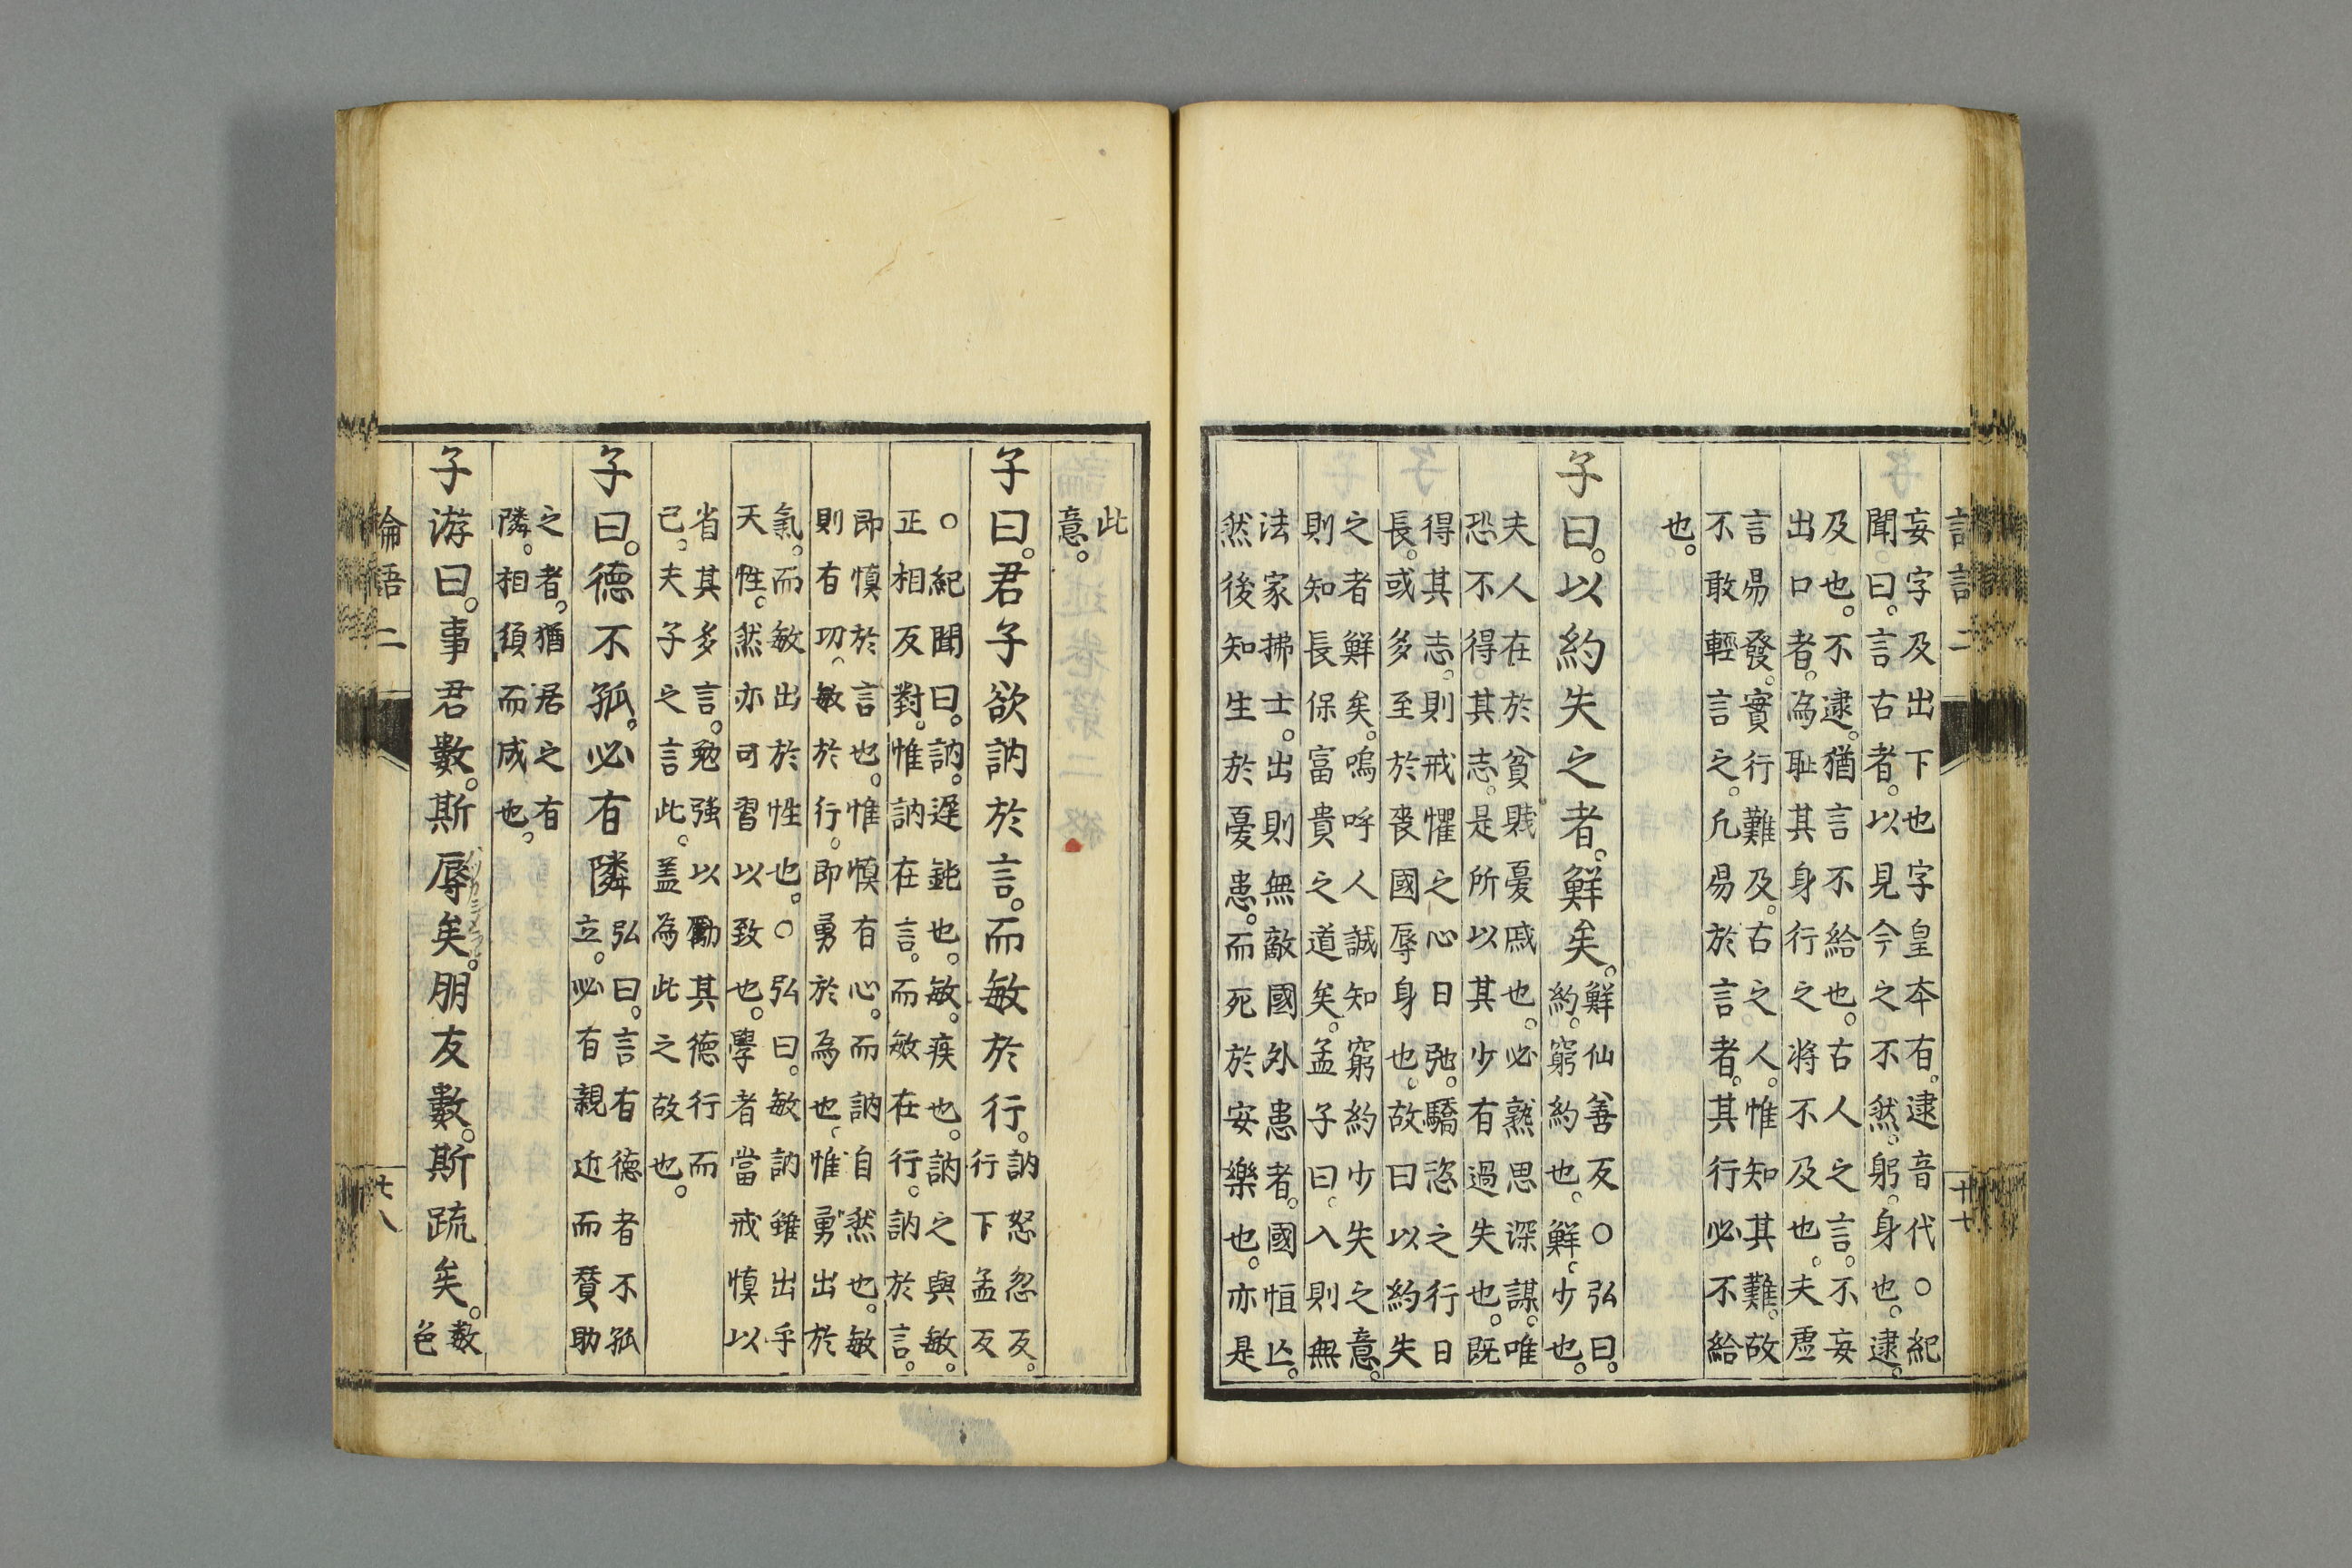 妄字及出下也字皇本有。逮音代○紀
聞。曰。言古者。以見今之不然。躬。身也。逮。
及也。不逮。猶言不給也。古人之言。不妄
出口者。為耻其身行之将不及也。夫虚
言易發。實行難及。古之人。惟知其難。故
不敢輕言之。凡易於言者。其行必不給
也。
子曰。以約失之者。鮮矣。鮮仙善反○弘曰。
約。窮約也。鮮。少也。
夫人在於貧賤憂戚也。必熟思深謀。唯
恐不得其志。是所以其少有過失也。既
得其志。則戒懼之心日弛。驕恣之行日
長。或多至於喪國辱身也。故曰以約失
之者鮮矣。嗚呼人誠知窮約少失之意。
則知長保富貴之道矣。孟子曰。入則無
法家拂士。出則無敵國外患者。國恒亾。
然後知生於憂患。而死於安樂也。亦是
此
意。
子曰。君子欲訥於言。而敏於行。訥怒忽反。
行下孟反
○紀聞曰。訥。遅鈍也。敏。疾也。訥之與敏。
正相反對。惟訥在言。而敏在行。訥於言。
即慎於言也。惟慎有心。而訥自然也。敏
則有功、敏於行。即勇於為也、惟勇出於
氣。而敏出於性也。○弘曰。敏訥雖出乎
天性。然亦可習以致也。學者當戒慎以
省其多言。勉強以勵其德行而
已。夫子之言此。盖為此之故也。
子曰。德不孤。必有隣弘曰。言有德者不孤
立。必有親近而賛助
之者。猶居之有
隣。相須而成也。
子游曰。事君數。斯辱矣。朋友數。斯疏矣。数
色
論語二
廿八
廿七